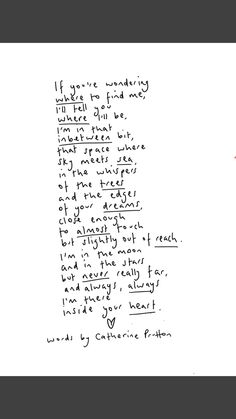 If you're wondering
where to find me,
I'll tell you
where I'll be,
I'm in that
inbetween bit,
that space where
sky meets sea,
in the whispers
of the trees
and the edges
of your dreams,
close enough
to almost touch
but slightly out of reach.
I'm in the moon
and in the stars
but never really far,
and always, always
I'm there
inside your heart.
words by Catherine Prutton